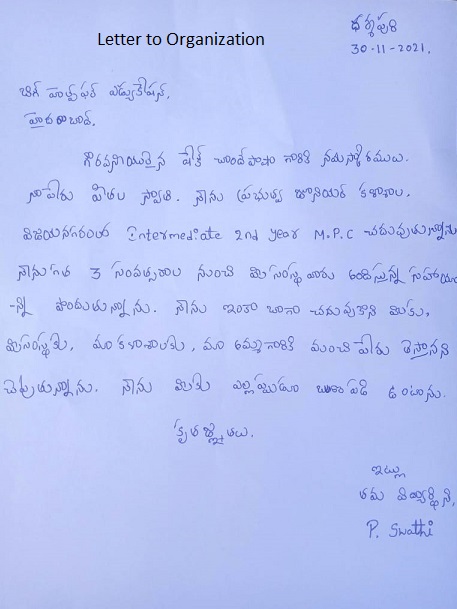 ధర్మపురి
Letter to Organization
30-11-2021.
బిగ్ హెల్ప్ ఫర్ ఎడ్యుకేషన్,
హైదరాబాద్.
గౌరవనీయులైన షేక్ చాంద్ పాషా గారికి నమస్కారములు.
నా పేరు పితల స్వాతి. నాను ప్రభుత్వ జూనియర్ కళాశాల,
విజయనగరంలో Intermediate 2nd year M.P.C చదువుతున్నాను
నాను గత 3 సంవత్సరాల నుంచి మీ సంస్థ వారు అందిస్తున్న సహాయం
-న్ని పొందుతున్నాను. నాను ఇంకా బాగా చదువుకొని మీకు,
మీ సంస్థకు, మా కళాశాలకు, మా అమ్మగారికి మంచి పేరు తెస్తానని
చెప్పుతున్నాను. నాను మీకు ఎల్లప్పుడూ ఋణపడి ఉంటాను.
కృతజ్ఞతలు.
ఇట్లు
తమ విద్యార్థిని,
P. Swathi